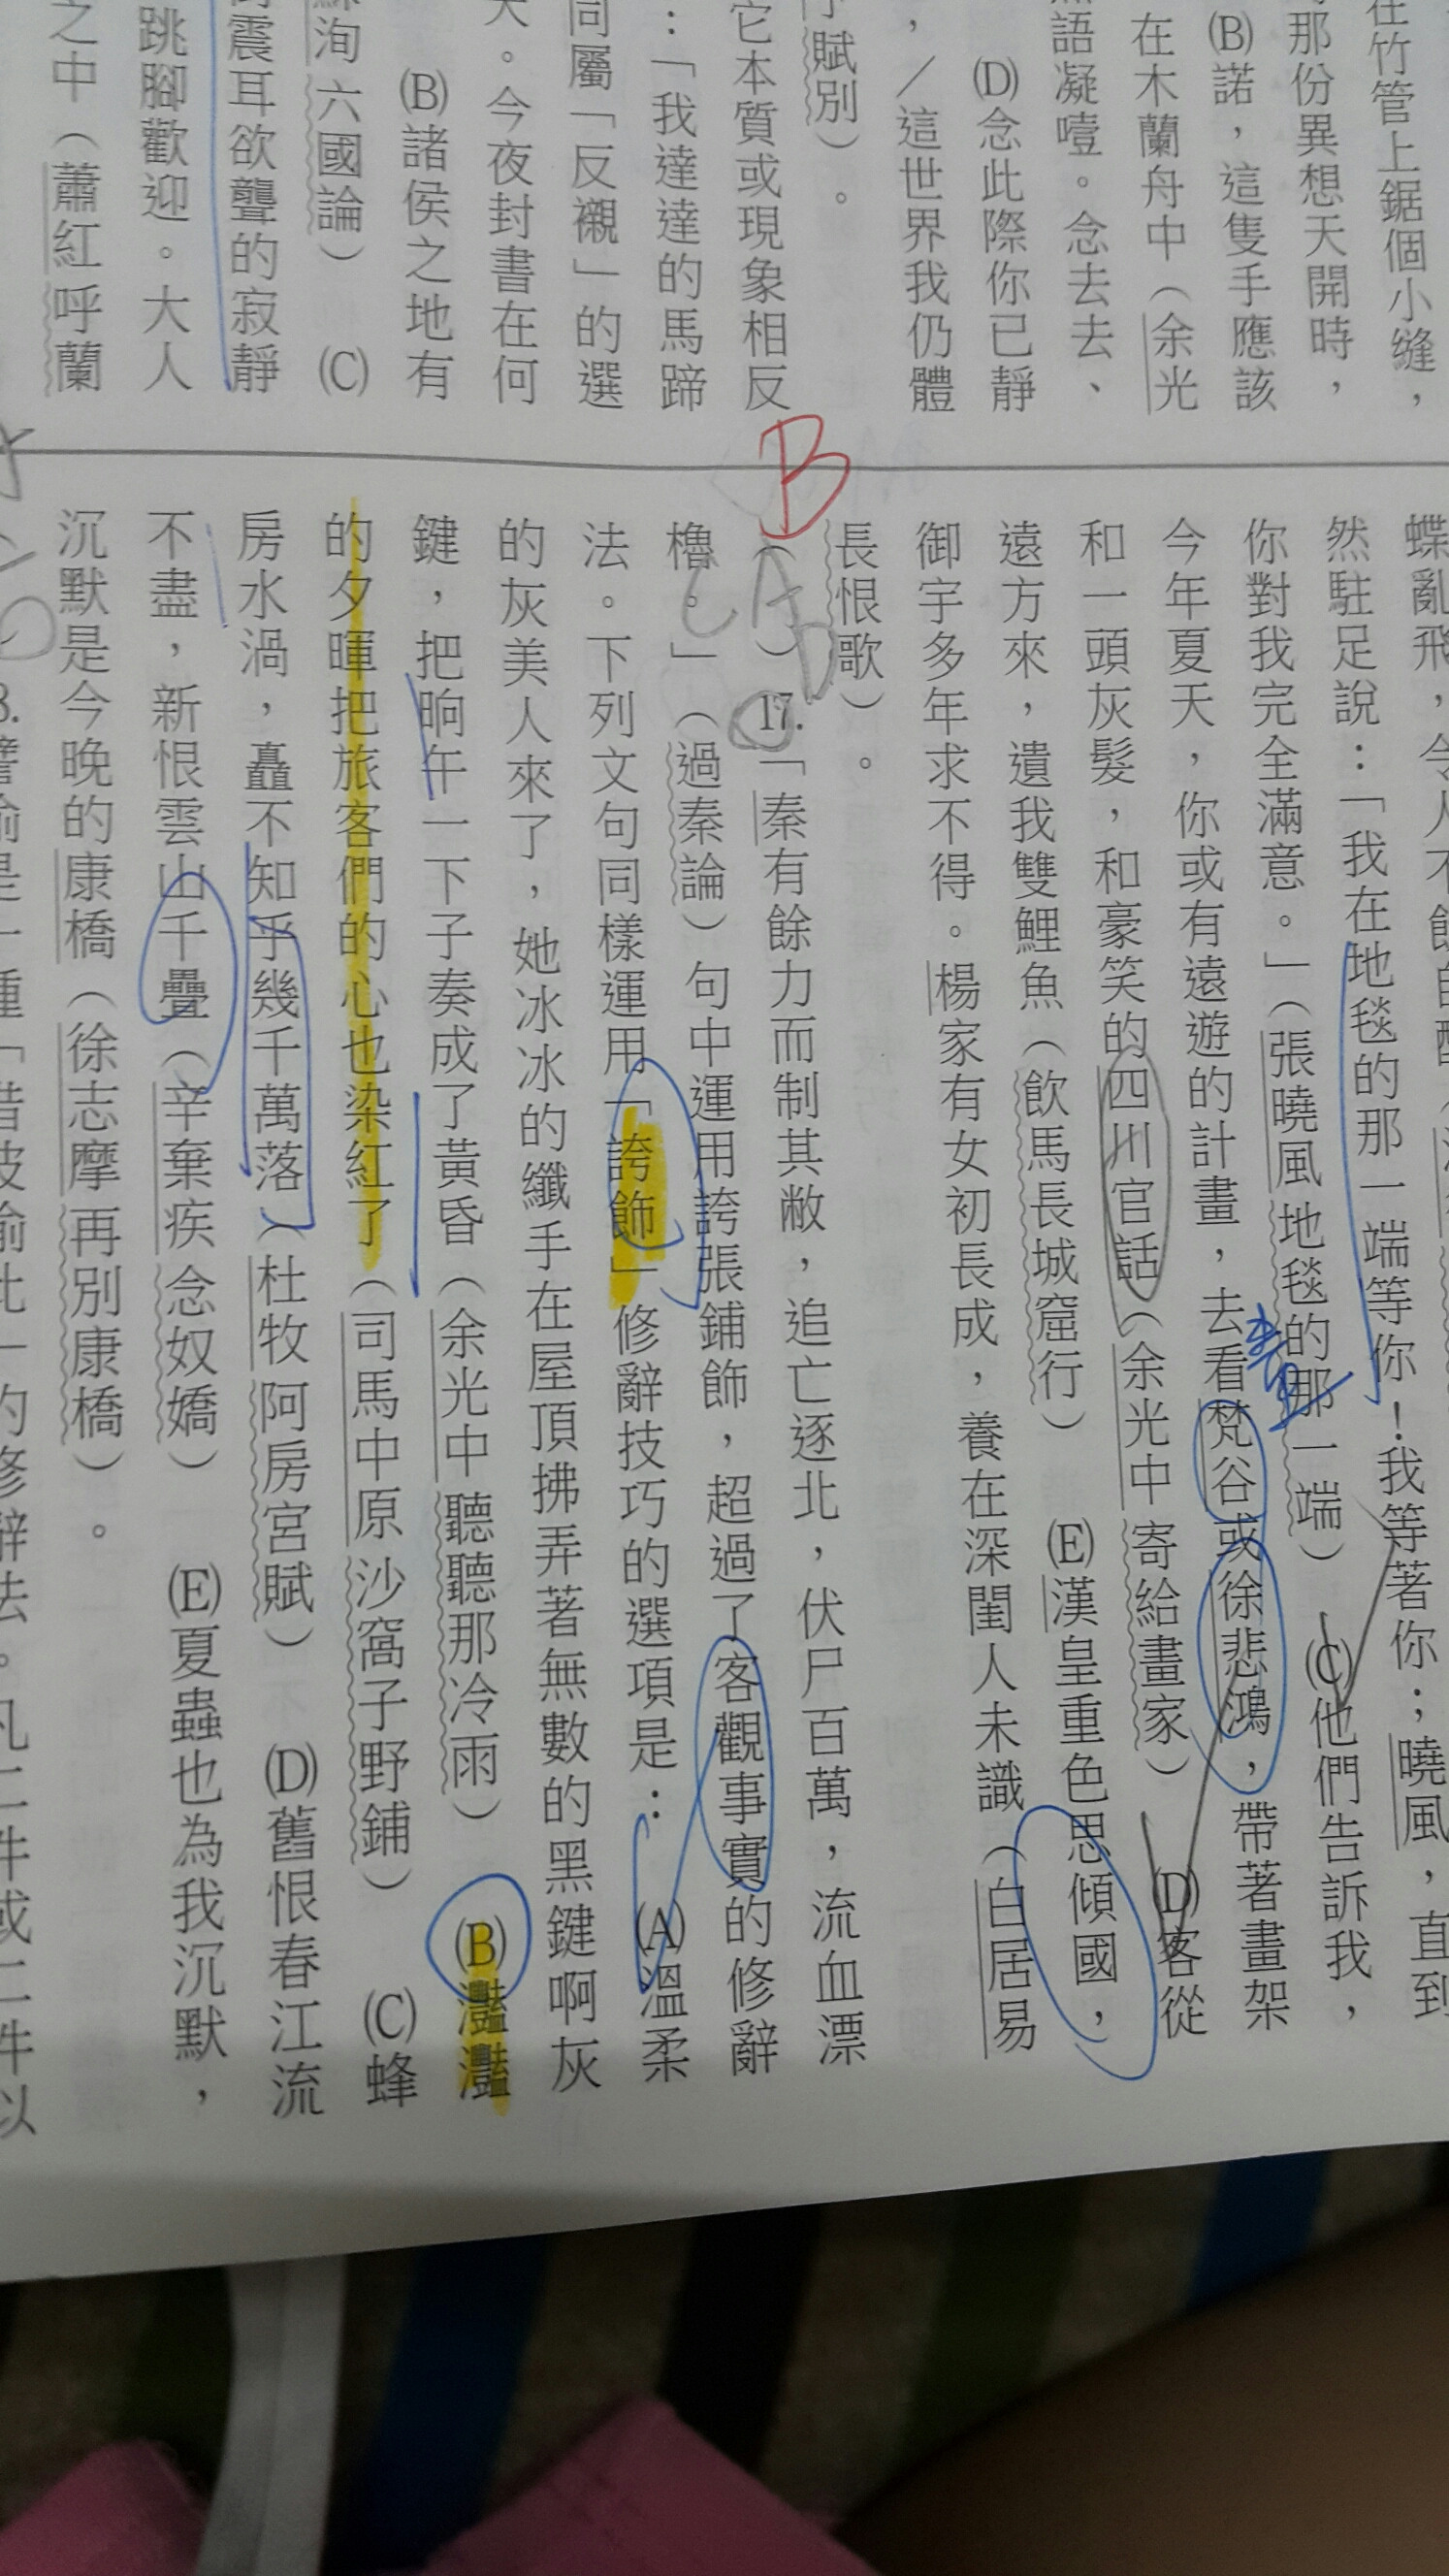 在竹管上鋸個小縫，
那份異想天開時，
(B)諾，這隻手應該
在木蘭舟中（余光
語凝噎。念去去、
(D)念此際你已靜
，／這世界我仍體
賦別）。
它本質或現象相反
：「我達達的馬蹄
同屬「反襯」的選
天。今夜封書在何
(B)諸侯之地有
洵 六國論） (C)
震耳欲聾的寂靜
跳腳歡迎。大人
之中（蕭紅 呼蘭
蝶亂飛，令人不飲
然駐足說：「我在地毯的那一端等你！我等著你；曉風，直到
你對我完全滿意。」（張曉風 地毯的那一端） (C)他們告訴我，
今年夏天，你或有遠遊的計畫，去看梵谷或徐悲鴻，帶著畫架
和一頭灰髮，和豪笑的四川官話（余光中 寄給畫家） (D)客從
遠方來，遺我雙鯉魚（飲馬長城窟行） (E)漢皇重色思傾國，
御宇多年求不得。楊家有女初長成，養在深閨人未識（白居易
長恨歌）。
B
（ ）17.「秦有餘力而制其敝，追亡逐北，伏尸百萬，流血漂
櫓。」（過秦論）句中運用誇張鋪飾，超過了客觀事實的修辭
法。下列文句同樣運用「誇飾」修辭技巧的選項是： (A)溫柔
的灰美人來了，她冰冰的纖手在屋頂拂弄著無數的黑鍵啊灰
鍵，把晌午一下子奏成了黃昏（余光中 聽聽那冷雨） (B)灩灩
的夕暉把旅客們的心也染紅了（司馬中原 沙窩子野鋪） (C)蜂
房水渦，矗不知乎幾千萬落（杜牧 阿房宮賦） (D)舊恨春江流
不盡，新恨雲山千疊（辛棄疾 念奴嬌） (E)夏蟲也為我沉默，
沉默是今晚的康橋（徐志摩 再別康橋）。